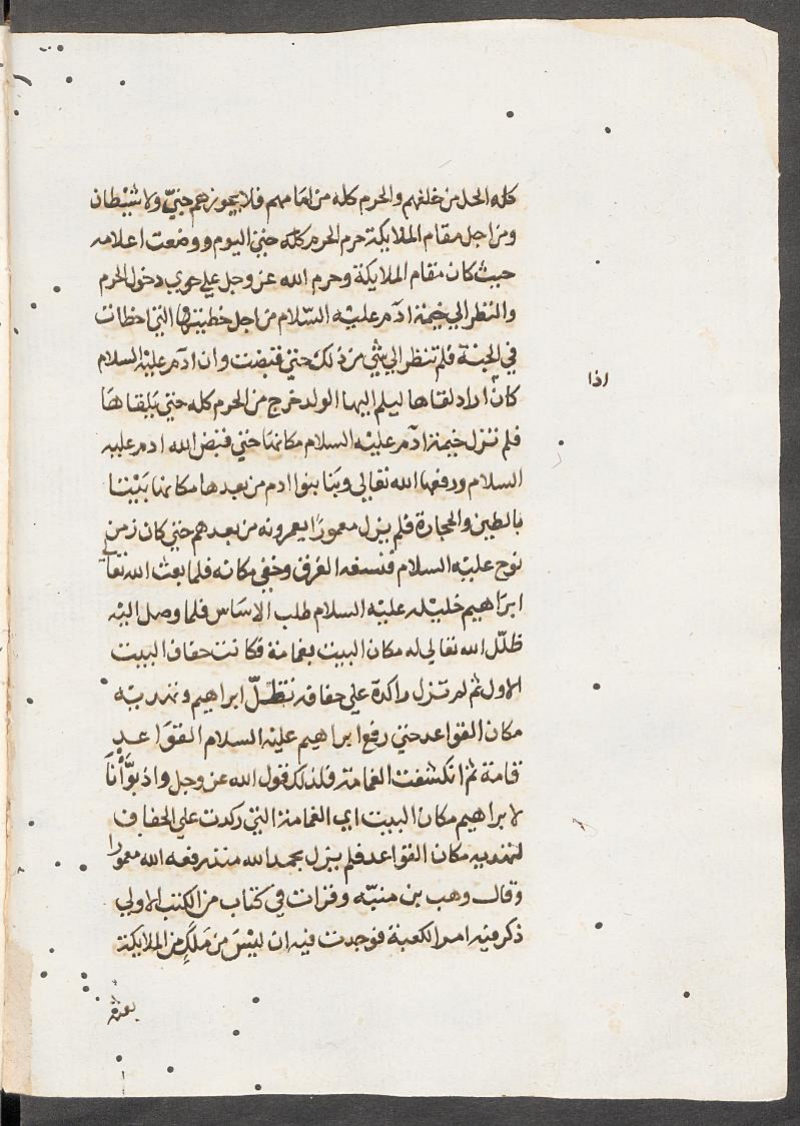 كله الحل من خلفهم والحرم كله من امامهم فلا يجوزهم جنيّ ولا شيْطان
ومن اجل مقام الملايكة حرم الحرم كله حتي اليوم ووضعت اعلامه
حيث كان مقام الملايكة وحرم الله عز وجل علي حوي دخول الحرم
والنظر الي خيمة ادٓم عليْه السّلام من اجل خطيتها التي اخطات
في الجنة فلم تنظر الي شي من ذلك حتي قبضت وان ادٓم عليْه السلام
كان اراد لقاها ليلم اليها الولد خرج من الحرم كله حتي يَلقاهَا
اذا
فلم تزل خيمة ادٓم عليْه السلام مكانها حتي قبض الله ادم عليه
السلام ورفعها الله تعالي وبَنا بنوا ادم من بعدها مكانها بَيْتا
بالطين والحجارة فلم يزل معمورًا يعمرونه من بعدهم حتي كان زمن
نوح عليْه السلام فنسفه الغرق وخفي مكانه فلما بعث الله تعالي
ابرَاهيم خليْله عليْه السلام طلب الاسَاس فلما وصل اليْه
ظلّل الله تعالي له مكان البيت بغمامة فكانت حفاف البيت
الاول ثم لم تزل راكدة علي حفافه تظلّ ابراهيم وتهديْه
مكان القواعد حتي رفع ابراهيم عليْه السلام القوَاعد
قامة ثم انكشفت الغمامة فلذلك قول الله عز وجل واذ بوَّأنَا
لابراهيم مكان البيت اي الغمامة التي ركدت علي الحفاف
لتهديه مكان القواعد فلم يزل بحمد الله منذ رفعه الله معمورا
وقال وهب بن منبّه وقرات في كتاب من الكتب الاولي
ذكر فيْه امر الكعبة فوجدت فيه ان ليْسَ من مَلَكٍ من الملايكة
بعثه